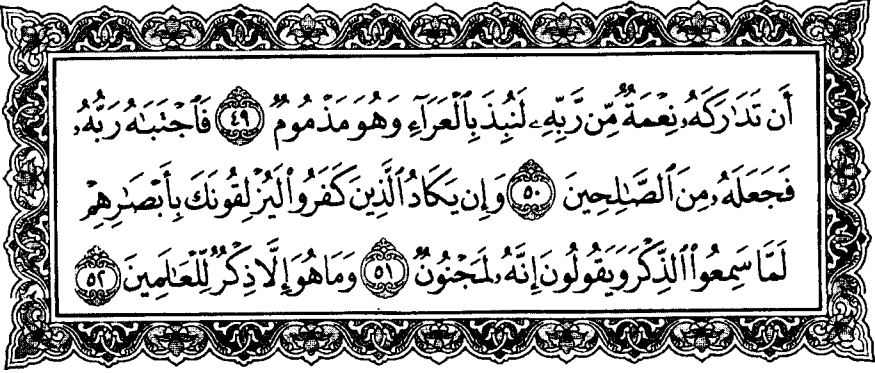 أَن تَدَٰرَكَهُۥ نِعْمَةٌ مِّن رَّبِّهِۦ لَنُبِذَ بِٱلْعَرَآءِ وَهُوَ مَذْمُومٌ ٤٩ فَٱجْتَبَٰهُ رَبُّهُۥ
فَجَعَلَهُۥ مِنَ ٱلصَّٰلِحِينَ ٥٠ وَإِن يَكَادُ ٱلَّذِينَ كَفَرُوا۟ لَيُزْلِقُونَكَ بِأَبْصَٰرِهِمْ
لَمَّا سَمِعُوا۟ ٱلذِّكْرَ وَيَقُولُونَ إِنَّهُۥ لَمَجْنُونٌ ٥١ وَمَا هُوَ إِلَّا ذِكْرٌ لِّلْعَٰلَمِينَ ٥٢